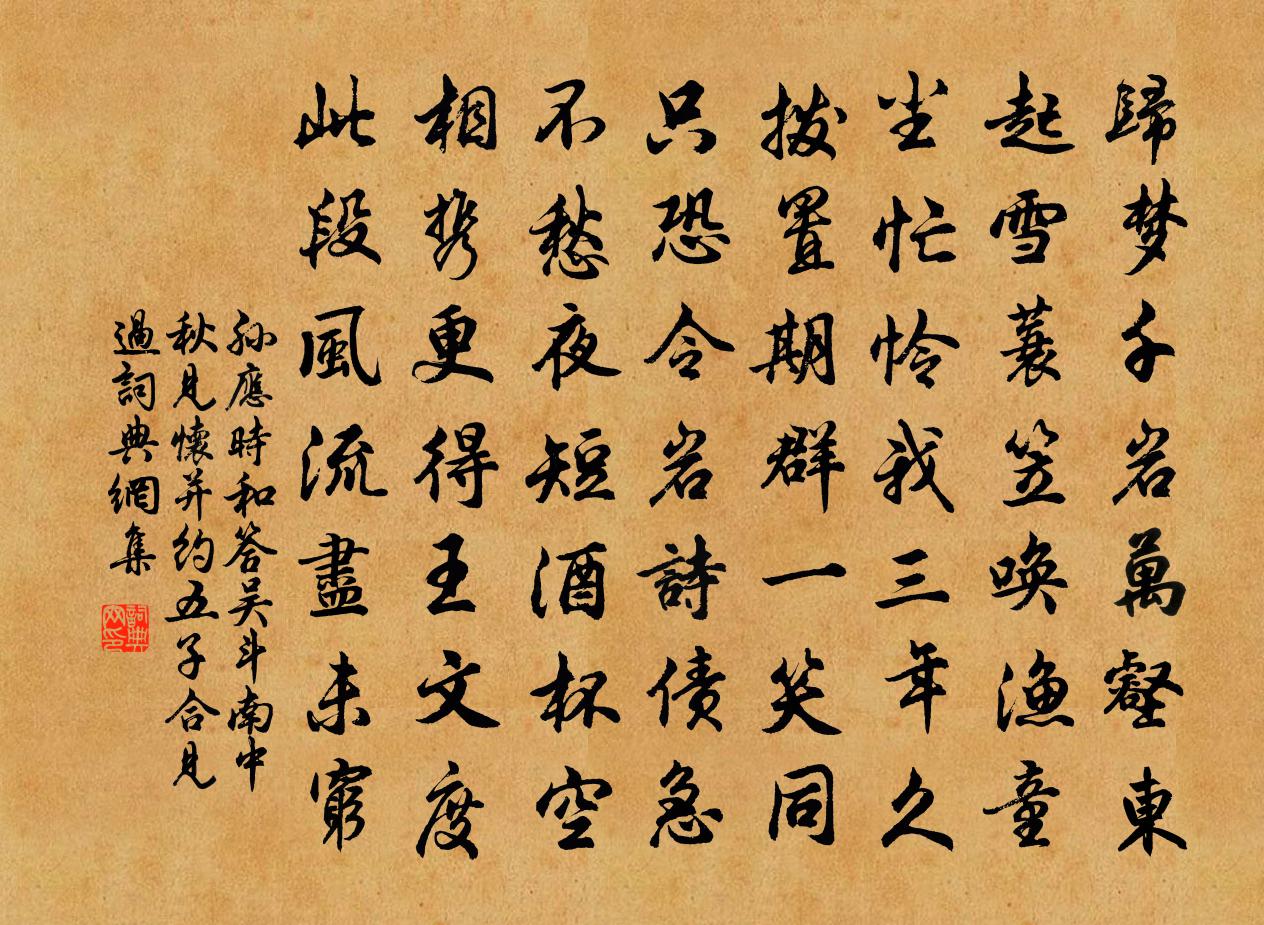 歸梦千岩萬壑東
起雪蓑笠唤漁童
坐忙怜我三年久
拨置期群一笑同
只恐令岩詩债急
不愁夜短酒杯空
相携更得王文度
此段風流盡未窮
孙應時和答吴斗南中
秋見懷并约五子合見
過詞典網集
詞典网印